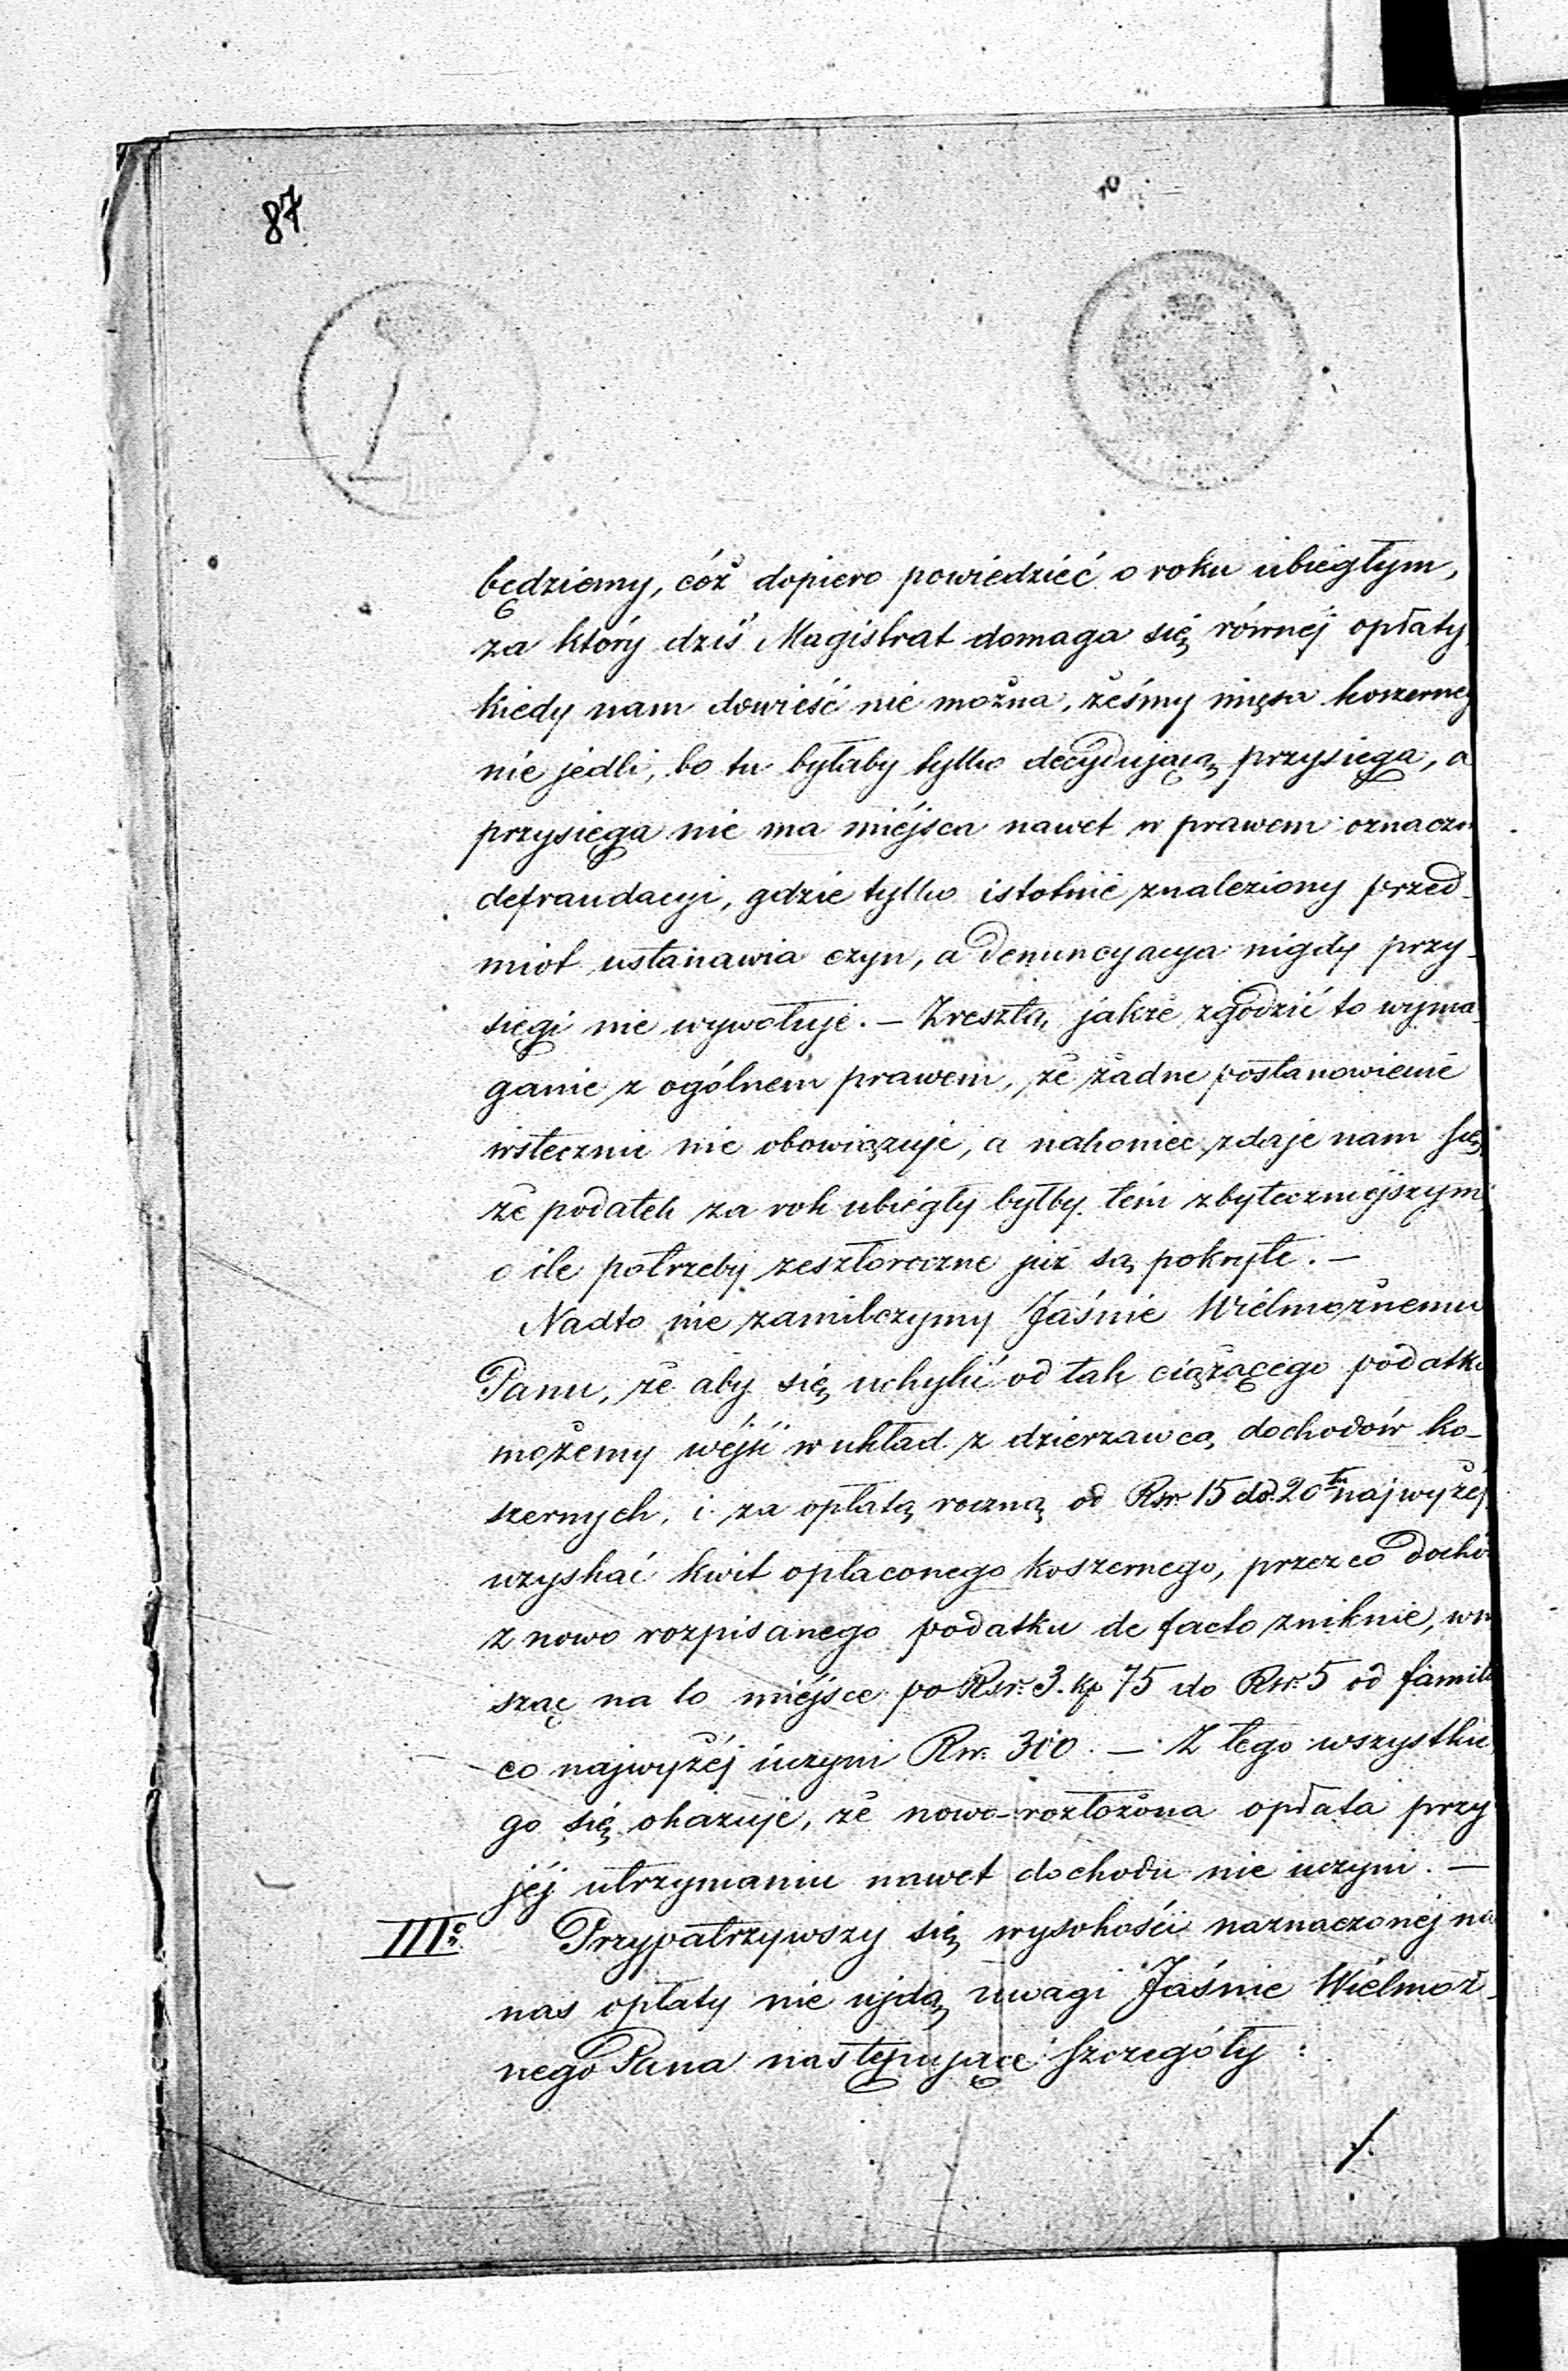 87
będziemy, cóż dopiero powiedzieć o roku ubiegłym,
za który dziś Magistrat domaga się równéj opłaty
kiedy nam dowieść nie można, żeśmy mięsa koszerneg
nie jedli, bo tu byłaby tylko decydującą przysięga, a
przysięga nie ma miéjsca nawet w prawem oznaczo
defraudacyi, gdzie tylko istotnie znaleziony przed-
miot ustanawia czyn, a denuncyacya nigdy przy-
sięgi nie wywołuje. – Zresztą, jakże zgodzić to wyma-
ganie z ogólnem prawem, że żadne postanowienie
wstecznie nie obowiązuje, a nakoniec zdaje nam się,
że podatek za rok ubiegły byłby tém zbyteczniejszym
o ile potrzeby zeszłoroczne już są pokryte. –
Nadto nie zamilczymy Jaśnie Wielmożnemu
Panu, że aby się uchylić od tak ciążącego podatku
możemy wéjść w układ z dzierzawcą dochodów ko-
szernych, i za opłatą roczną od Rsr. 15 do 20tu najwyżéj
uzyskać kwit opłaconego koszernego, przez co dochó
z nowo rozpisanego podatku de facto zniknie, wno
sząc na to miéjsce po Rsr. 3. kp 75 do Rsr. 5 od famili
co najwyżéj uczyni Rsr. 300. – Z tego wszystkie
go się okazuje, że nowo-rozłożona opłata przy
jéj utrzymaniu nawet dochodu nie uczyni. –
IIIo. Przypatrzywszy się wysokości naznaczonéj na
nas opłaty nie ujdą uwagi Jaśnie Wielmoż-
nego Pana następujące szczegóły :
./.